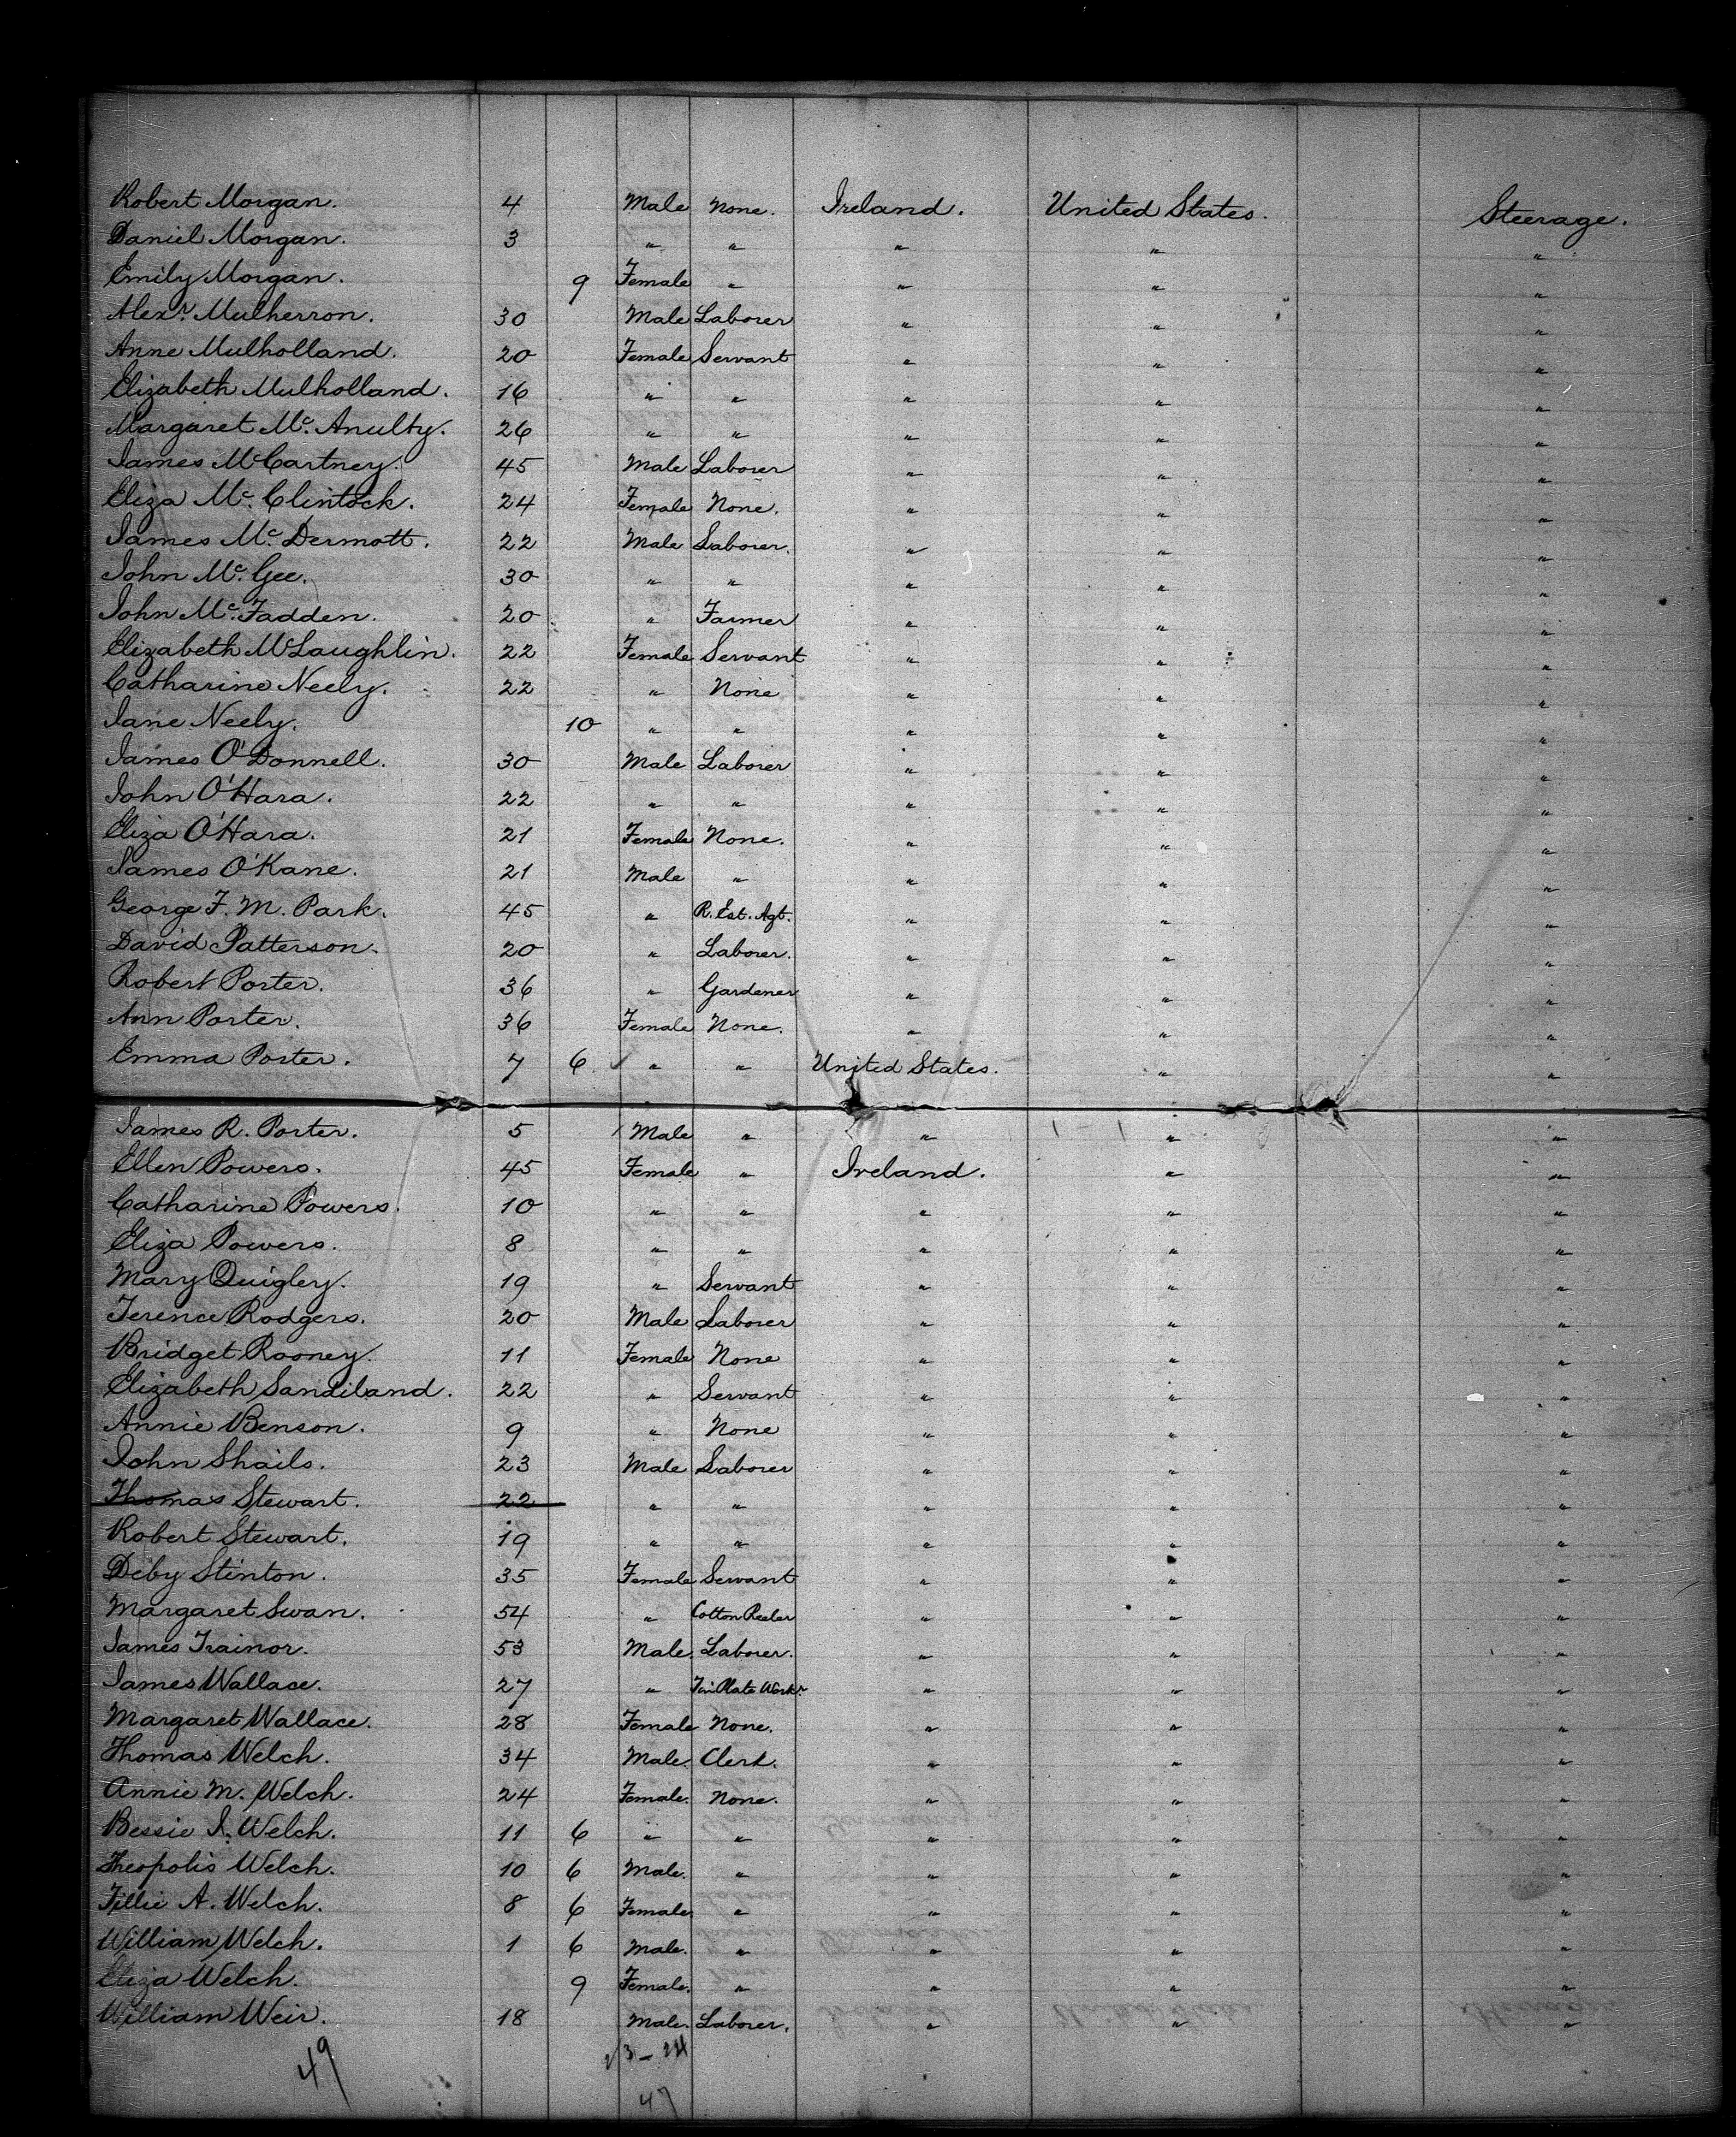 Robert Morgan. 4 Male None. Ireland. United States. Steerage.
Daniel Morgan. 3 " " " " "
Emily Morgan. 9 Female " " " "
Alexr. Mulherron. 30 Male Laborer " " "
Anne Mulholland. 20 Female Servant " " "
Elizabeth Mulholland. 16 " " " " "
Margaret Mc. Anulty. 26 " " " " "
James McCartney. 45 Male Laborer " " "
Eliza Mc. Clintock. 24 Female None. " " "
James Mc. Dermott. 22 Male Laborer. " " "
John Mc. Gee. 30 " " " " "
John Mc. Fadden. 20 " Farmer " " "
Elizabeth McLaughlin. 22 Female Servant " " "
Catharine Neely. 22 " None " " "
Jane Neely. 10 " " " " "
James O'Donnell. 30 Male Laborer " " "
John O'Hara. 22 " " " " "
Eliza O'Hara. 21 Female None. " " "
James O'Kane. 21 Male " " " "
George F. M. Park. 45 " R. Est. Agt. " " "
David Patterson. 20 " Laborer. " " "
Robert Porter. 36 " Gardener " " "
Ann Porter. 36 Female None. " " "
Emma Porter. 7 6 " " United States. " "
James R. Porter. 5 Male " " " "
Ellen Powers. 45 Female " Ireland. " "
Catharine Powers. 10 " " " " "
Eliza Powers. 8 " " " " "
Mary Quigley. 19 " Servant " " "
Terence Rodgers. 20 Male Laborer " " "
Bridget Rooney. 11 Female None " " "
Elizabeth Sandiland. 22 " Servant " " "
Annie Benson. 9 " None " " "
John Shails. 23 Male Laborer " " "
Thomas Stewart. 22 " " " " "
Robert Stewart. 19 " " " " "
Deby Stinton. 35 Female Servant " " "
Margaret Swan. 54 " Cotton Reeler " " "
James Trainor. 53 Male. Laborer. " " "
James Wallace. 27 " Tin Plate Workr. " " "
Margaret Wallace. 28 Female None. " " "
Thomas Welch. 34 Male. Clerk. " " "
Annie M. Welch. 24 Female. None. " " "
Bessie I. Welch. 11 6 " " " " "
Theopolis Welch. 10 6 Male. " " " "
Tillie A. Welch. 8 6 Female. " " " "
William Welch. 1 6 Male. " " " "
Eliza Welch. 9 Female. " " " "
William Weir. 18 Male. Laborer. " " "
49 23 - 24
47